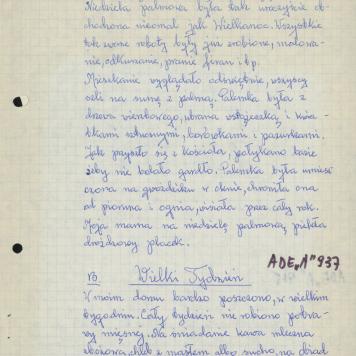 Niedziela palmowa była tak uroczyście ob-
chodzona nieomal jak Wielkanoc. Wszystkie
tak zwane roboty były już zrobione, malowa-
nie, odkurzanie, pranie firan i t.p.
Mieszkanie wyglądało odświętnie, wszyscy
szli na sumę z palmą. Palemka była z
drzewa wierzbowego, ubrana wstążeczką i kwia-
tkami sztucznymi, borówkami i pazurkami.
Jak przyszło się z kościoła, połykano bazie
żeby nie bolało gardło. Palemka była umiesz
czona na gwoździku w oknie, chroniła ona
od pioruna i ognia, wisiała przez cały rok.
Moja mama na niedzielę palmową piekła
drożdżowy placek.
ADE„1" 937
Wielki Tydzień
W moim domu bardzo poszczono, w wielkim
tygodniu. Cały tydzień nie robiono potra-
wy mięsnej. Na śniadanie kawa mleczna
zbożowa, chleb z masłem albo sucho, na obiad